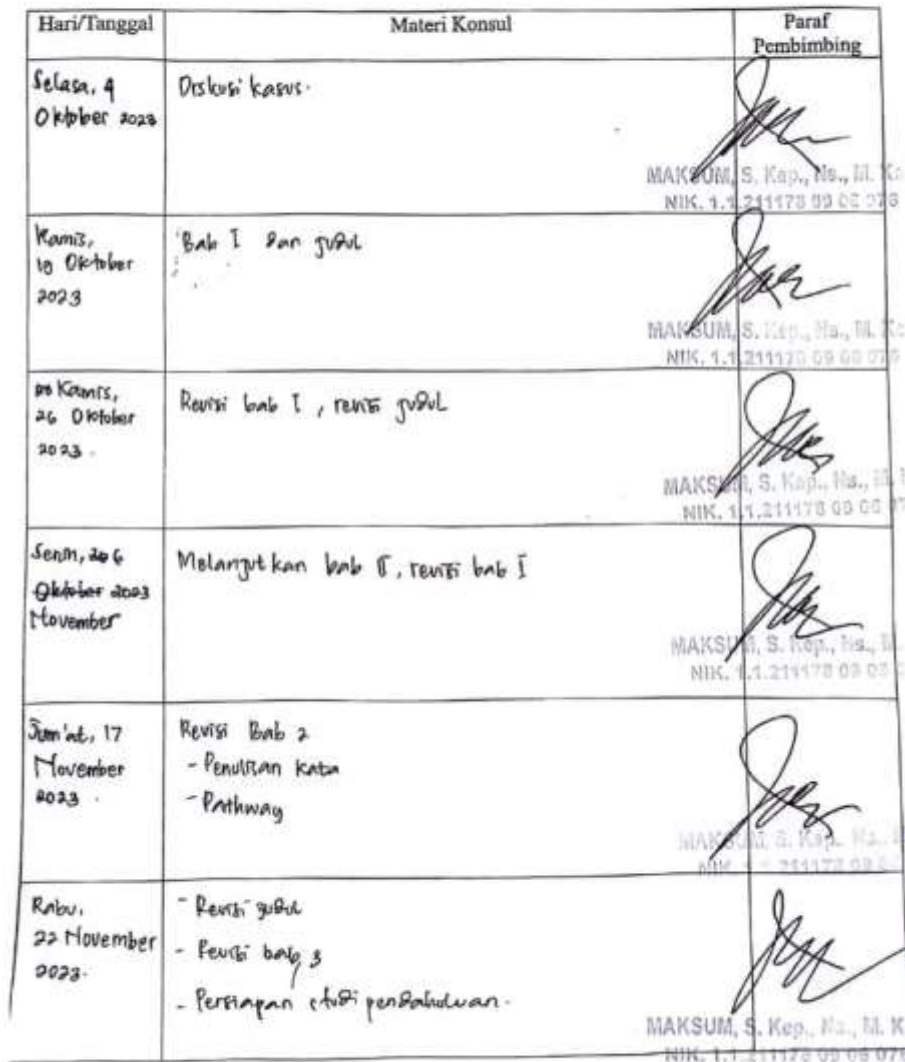 Hari/Tanggal
Materi Konsul
Paraf
Pembimbing
Selasa, 4
Oktober 2023
Diskusi kasus.
MAKSUM, S. Kep., Ns., M. Ke
NIK. 1.1.211178 09 06 076
Kamis,
Oktober
2023
Bab I dan judul
MAKSUM, S. Kep., Ns., M. Ke
NIK. 1.1.211178 09 06 076
Kamis,
26 Oktober
2023.
Revisi bab I, revisi judul
MAKSUM, S. Kep., Ns., M.
NIK. 1.1.211178 09 06 07
Senin, 6
Oktober 2023
November
Melanjutkan bab II, revisi bab I
MAKSUM, S. Kep., Ns., M.
NIK. 1.1.211178 09 06
Jum'at, 17
November
2023.
Revisi Bab 2
- Penulisan kata
- Pathway
MAKSUM, S. Kep., Ns.,
NIK. 1.1.211178 09
Rabu,
22 November
2023.
- Revisi judul
- Revisi bab 3
- Persiapan studi pendahuluan.
MAKSUM, S. Kep., Ns., M. K
NIK. 1.1.211178 09 06 076